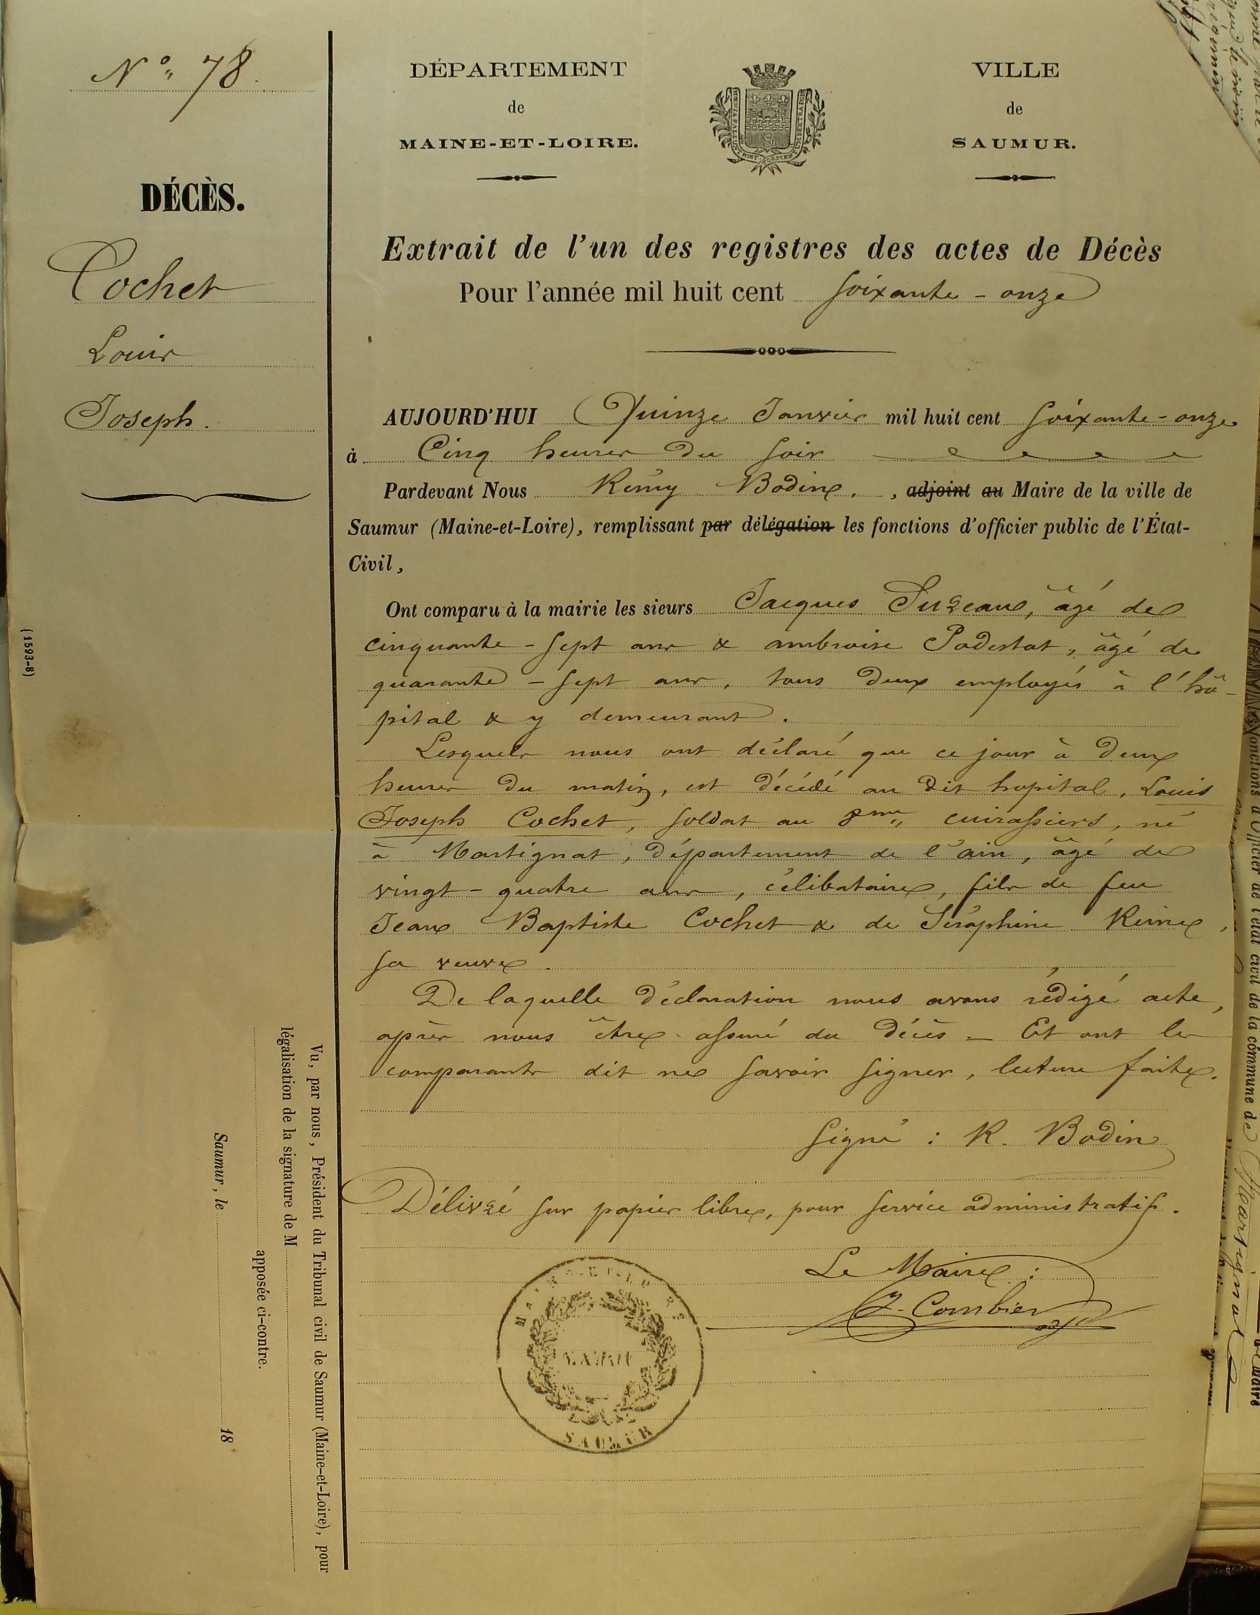 N° 78.
DÉCÈS.
Cochet
Louis
Joseph.
(1593-8)
Vu, par nous, Président du Tribunal civil de Saumur (Maine-et-Loire), pour
légalisation de la signature de M
apposée ci-contre.
Saumur, le 18
DÉPARTEMENT
de
MAINE-ET-LOIRE.
VILLE
de
SAUMUR.
Extrait de l'un des registres des actes de Décès
Pour l'année mil huit cent soixante-onze
AUJOURD'HUI Quinze Janvier mil huit cent soixante-onze
à Cinq heures du soir
Pardevant Nous Rémy Bodin, adjoint au Maire de la ville de
Saumur (Maine-et-Loire), remplissant par délégation les fonctions d'officier public de l'État-
Civil,
Ont comparu à la mairie les sieurs Jacques Suzeau, âgé de
cinquante-sept ans & ambroise Podestat, âgé de
quarante-sept ans, tous deux employés à l'hô-
pital & y demeurant.
Lesquels nous ont déclaré que ce jour à deux
heures du matin, est décédé au dit hopital, Louis
Joseph Cochet, soldat au 8me cuirassiers, né
à Martignat, département de l'ain, âgé de
vingt-quatre ans, célibataire, fils de feu
Jean Baptiste Cochet & de Séraphine Reine,
sa veuve.
De laquelle déclaration nous avons rédigé acte,
après nous être assuré du décès - Et ont les
comparants dit ne savoir signer, lecture faite.
Signé : R. Bodin
Délivré sur papier libre, pour service administratif.
Le Maire :
J. Combier
MAINE-ET-LOIRE
MAIRIE
SAUMUR
fonctions d'Officier de l'état civil de la commune de Martignat